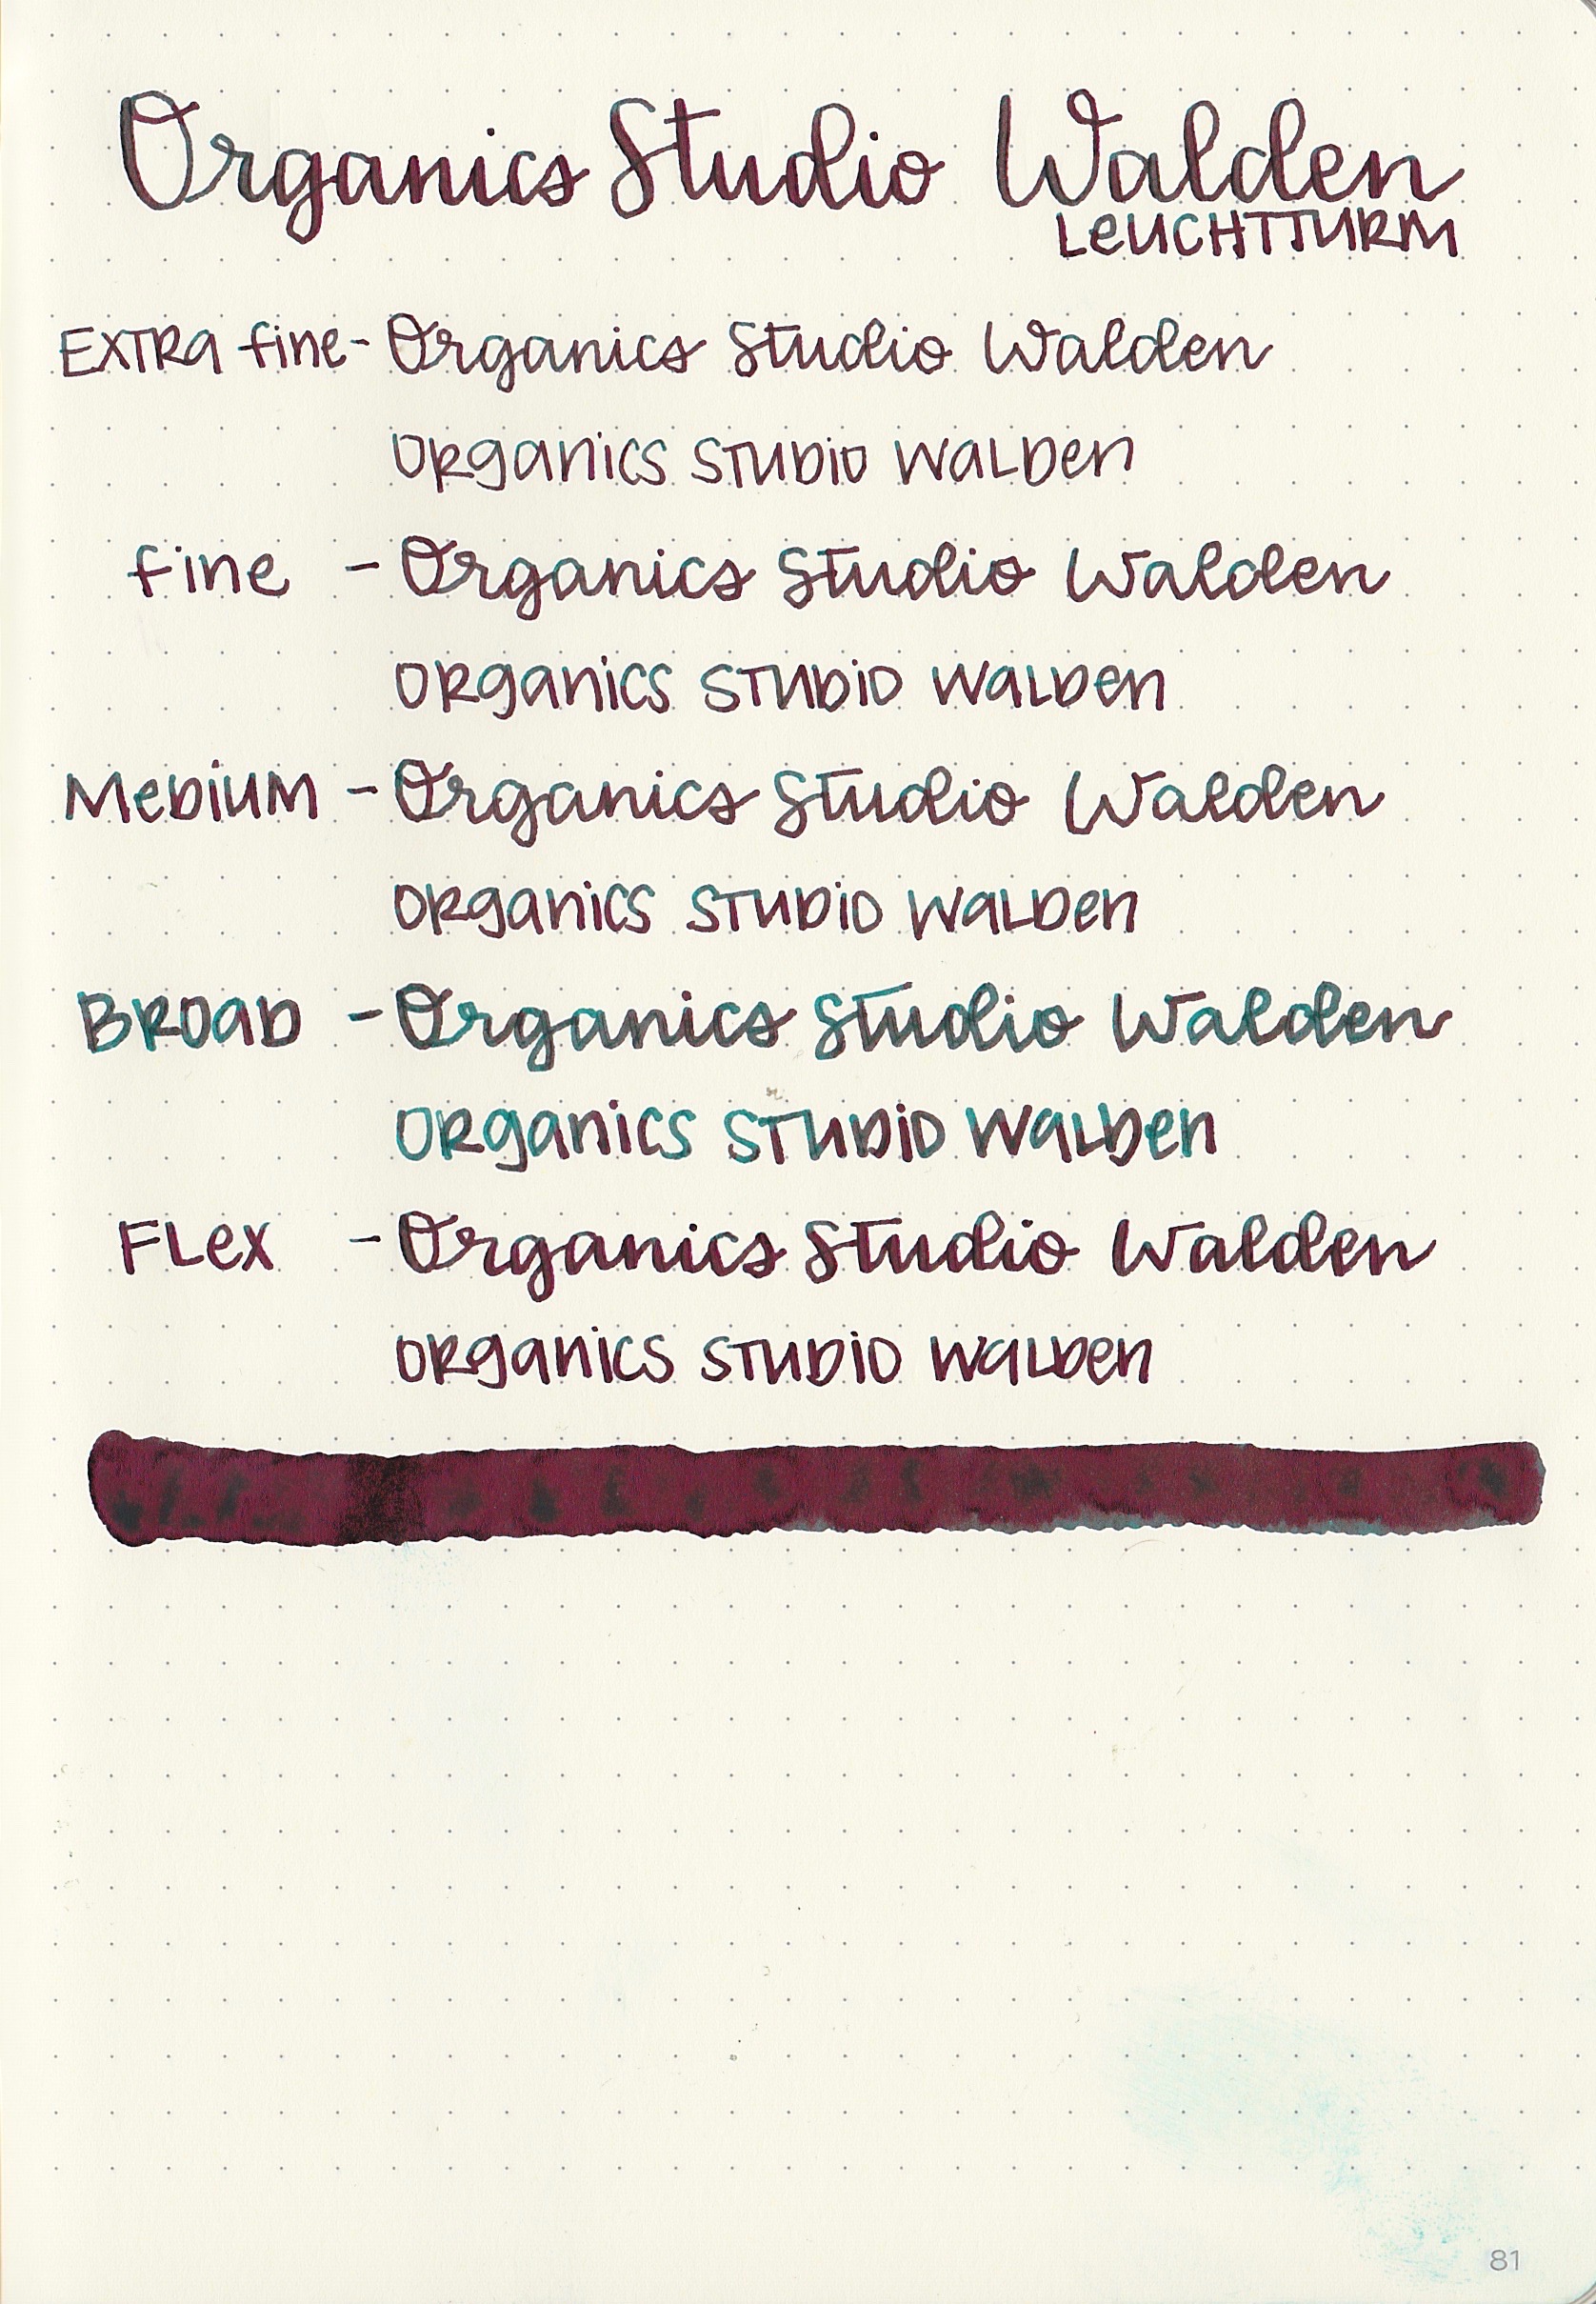 Organics Studio Walden
LEUCHTTURM
EXTRA fine - Organics Studio Walden
ORganics STUDIO WaLDen
fine - Organics Studio Walden
ORganics STUDIO WaLDen
MeDiUM - Organics Studio Walden
ORganics STUDIO WaLDen
BROaD - Organics Studio Walden
ORganics STUDIO WaLDen
FLex - Organics Studio Walden
ORganics STUDIO WaLDen
81